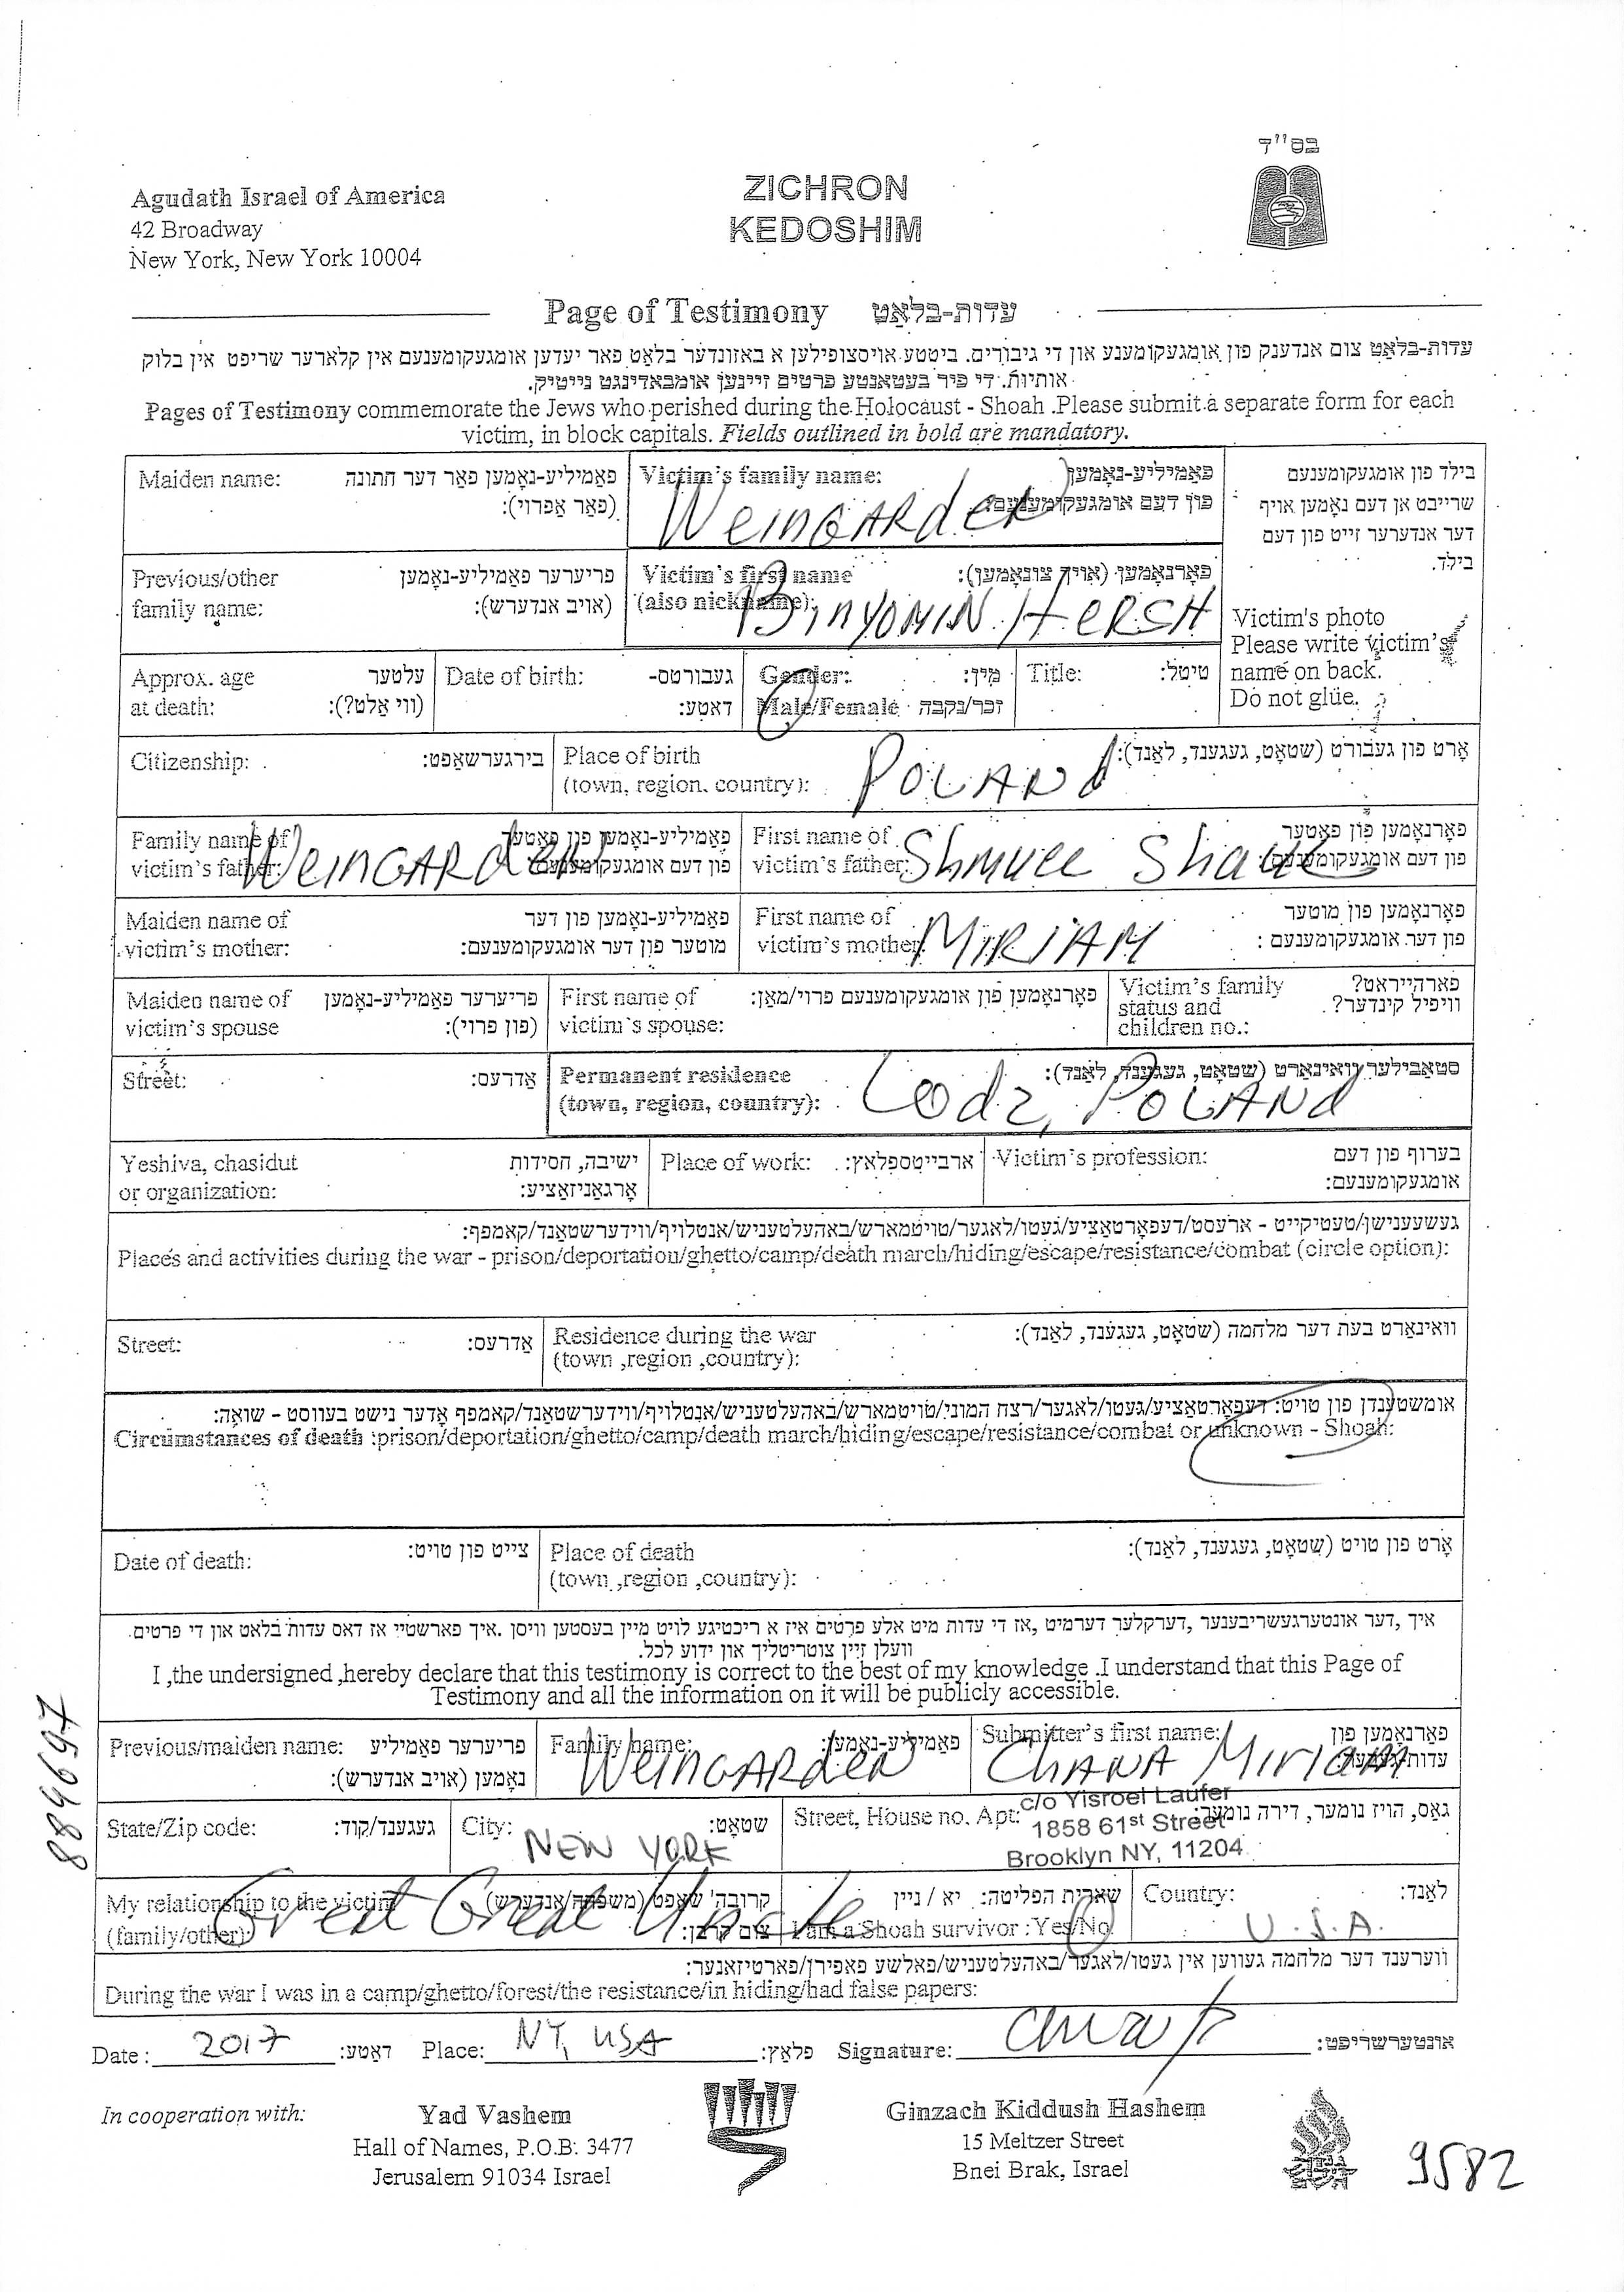 בס"ד
Agudath Israel of America
42 Broadway
New York, New York 10004
ZICHRON
KEDOSHIM
Page of Testimony עדות-בלאַט
עדות-בלאַט צום אנדענק פון אומגעקומענע און די גיבורים. ביטטע אויסצופילען א באזונדער בלאַט פאר יעדען אומגעקומענעם אין קלארער שריפט אין בלוק
אותיות. די פיר בעטאנטע פרטים זיינען אומבאדינגט נייטיק.
Pages of Testimony commemorate the Jews who perished during the Holocaust - Shoah .Please submit a separate form for each
victim, in block capitals. Fields outlined in bold are mandatory.
Maiden name: פאַמיליע-נאָמען פאַר דער חתונה
(פאַר אַפרוי):
Victim's family name: פאַמיליע-נאָמען
פון דעם אומגעקומענעם:
WeinGARdeN
בילד פון אומגעקומענעם
שרייבט אן דעם נאָמען אויף
דער אנדערער זייט פון דעם
בילד.
Victim's photo
Please write victim's
name on back.
Do not glue.
Previous/other פריערער פאַמיליע-נאָמען
family name: (אויב אנדערש):
Victim's first name פאָרנאָמען (אויך צונאָמען):
(also nickname):
BinYOMIN HERSH
Approx. age עלטער
at death: (ווי אַלט?):
Date of birth: געבורטס-
דאַטע:
Gender: מין:
Male/Female זכר/נקבה
Title: טיטל:
Citizenship: בירגערשאַפט:
Place of birth אָרט פון געבורט (שטאָט, געגענד, לאַנד):
(town, region, country): POLANd
Family name of פאַמיליע-נאָמען פון פאָטער
victim's father: פון דעם אומגעקומענעם
WeinGARdeN
First name of פאָרנאָמען פון פאָטער
victim's father: פון דעם אומגעקומענעם:
Shmuel Shaul
Maiden name of פאַמיליע-נאָמען פון דער
victim's mother: מוטער פון דער אומגעקומענעם:
First name of פאָרנאָמען פון מוטער
victim's mother: פון דער אומגעקומענעם:
MIRIAM
Maiden name of פריערער פאַמיליע-נאָמען
victim's spouse (פון פרוי):
First name of פאָרנאָמען פון אומגעקומענעם פרוי/מאַן:
victim's spouse:
Victim's family פארהייראט?
status and וויפיל קינדער?
children no.:
Street: אַדרעס:
Permanent residence סטאַבילער וואוינארט (שטאָט, געגענד, לאַנד):
(town, region, country): Lodz, POLANd
Yeshiva, chasidut ישיבה, חסידות
or organization: אָרגאַניזאַציע:
Place of work: ארבייטספּלאץ:
Victim's profession: בערוף פון דעם
אומגעקומענעם:
געשעענישן/טעטיקייט - ארעסט/דעפּאָרטאַציע/געטו/לאגער/טויטמארש/באהעלטעניש/אנטלויף/ווידערשטאַנד/קאמפף:
Places and activities during the war - prison/deportation/ghetto/camp/death march/hiding/escape/resistance/combat (circle option):
Street: אַדרעס:
Residence during the war וואוינארט בעת דער מלחמה (שטאָט, געגענד, לאַנד):
(town ,region ,country):
אומשטענדן פון טויט: דעפּאָרטאַציע/געטו/לאגער/רצח המוני/טויטמארש/באהעלטעניש/אנטלויף/ווידערשטאַנד/קאמפף אָדער נישט בעוואוסט - שואה:
Circumstances of death :prison/deportation/ghetto/camp/death march/hiding/escape/resistance/combat or unknown - Shoah:
Date of death: צייט פון טויט:
Place of death אָרט פון טויט (שטאָט, געגענד, לאַנד):
(town ,region ,country):
איך ,דער אונטערגעשריבענער ,דערקלער דערמיט ,אז די עדות מיט אלע פרטים איז א ריכטיגע לויט מיין בעסטען וויסן .איך פארשטיי אז דאס עדות בלאט און די פרטים
וועלן זיין צוטריטליך און ידוע לכל.
I ,the undersigned ,hereby declare that this testimony is correct to the best of my knowledge .I understand that this Page of
Testimony and all the information on it will be publicly accessible.
Previous/maiden name: פריערער פאַמיליע
נאָמען (אויב אנדערש):
Family name: פאַמיליע-נאָמען:
WeinGARdeN
Submitter's first name: פאָרנאָמען פון
CHANA Miriam
State/Zip code: געגענד/קוד:
City: שטאָט:
NEW YORK
Street, House no. Apt: גאַס, הויז נומער, דירה נומער:
c/o Yisroel Laufer
1858 61st Street
Brooklyn NY, 11204
My relationship to the victim קרובה'שאַפט (משפחה/אנדערש)
(family/other): צום קרבן:
Great Great Uncle
שארית הפליטה: יא / ניין
I am a Shoah survivor : Yes/No
Country: לאַנד:
U.S.A.
ווערענד דער מלחמה געווען אין געטו/לאגער/באהעלטעניש/פאלשע פאפירן/פארטיזאנער:
During the war I was in a camp/ghetto/forest/the resistance/in hiding/had false papers:
Date : 2017 דאַטע: Place: NY, USA פּלאַץ: Signature: אונטערשריפט:
In cooperation with:
Yad Vashem
Hall of Names, P.O.B. 3477
Jerusalem 91034 Israel
Ginzach Kiddush Hashem
15 Meltzer Street
Bnei Brak, Israel
9582
8896697